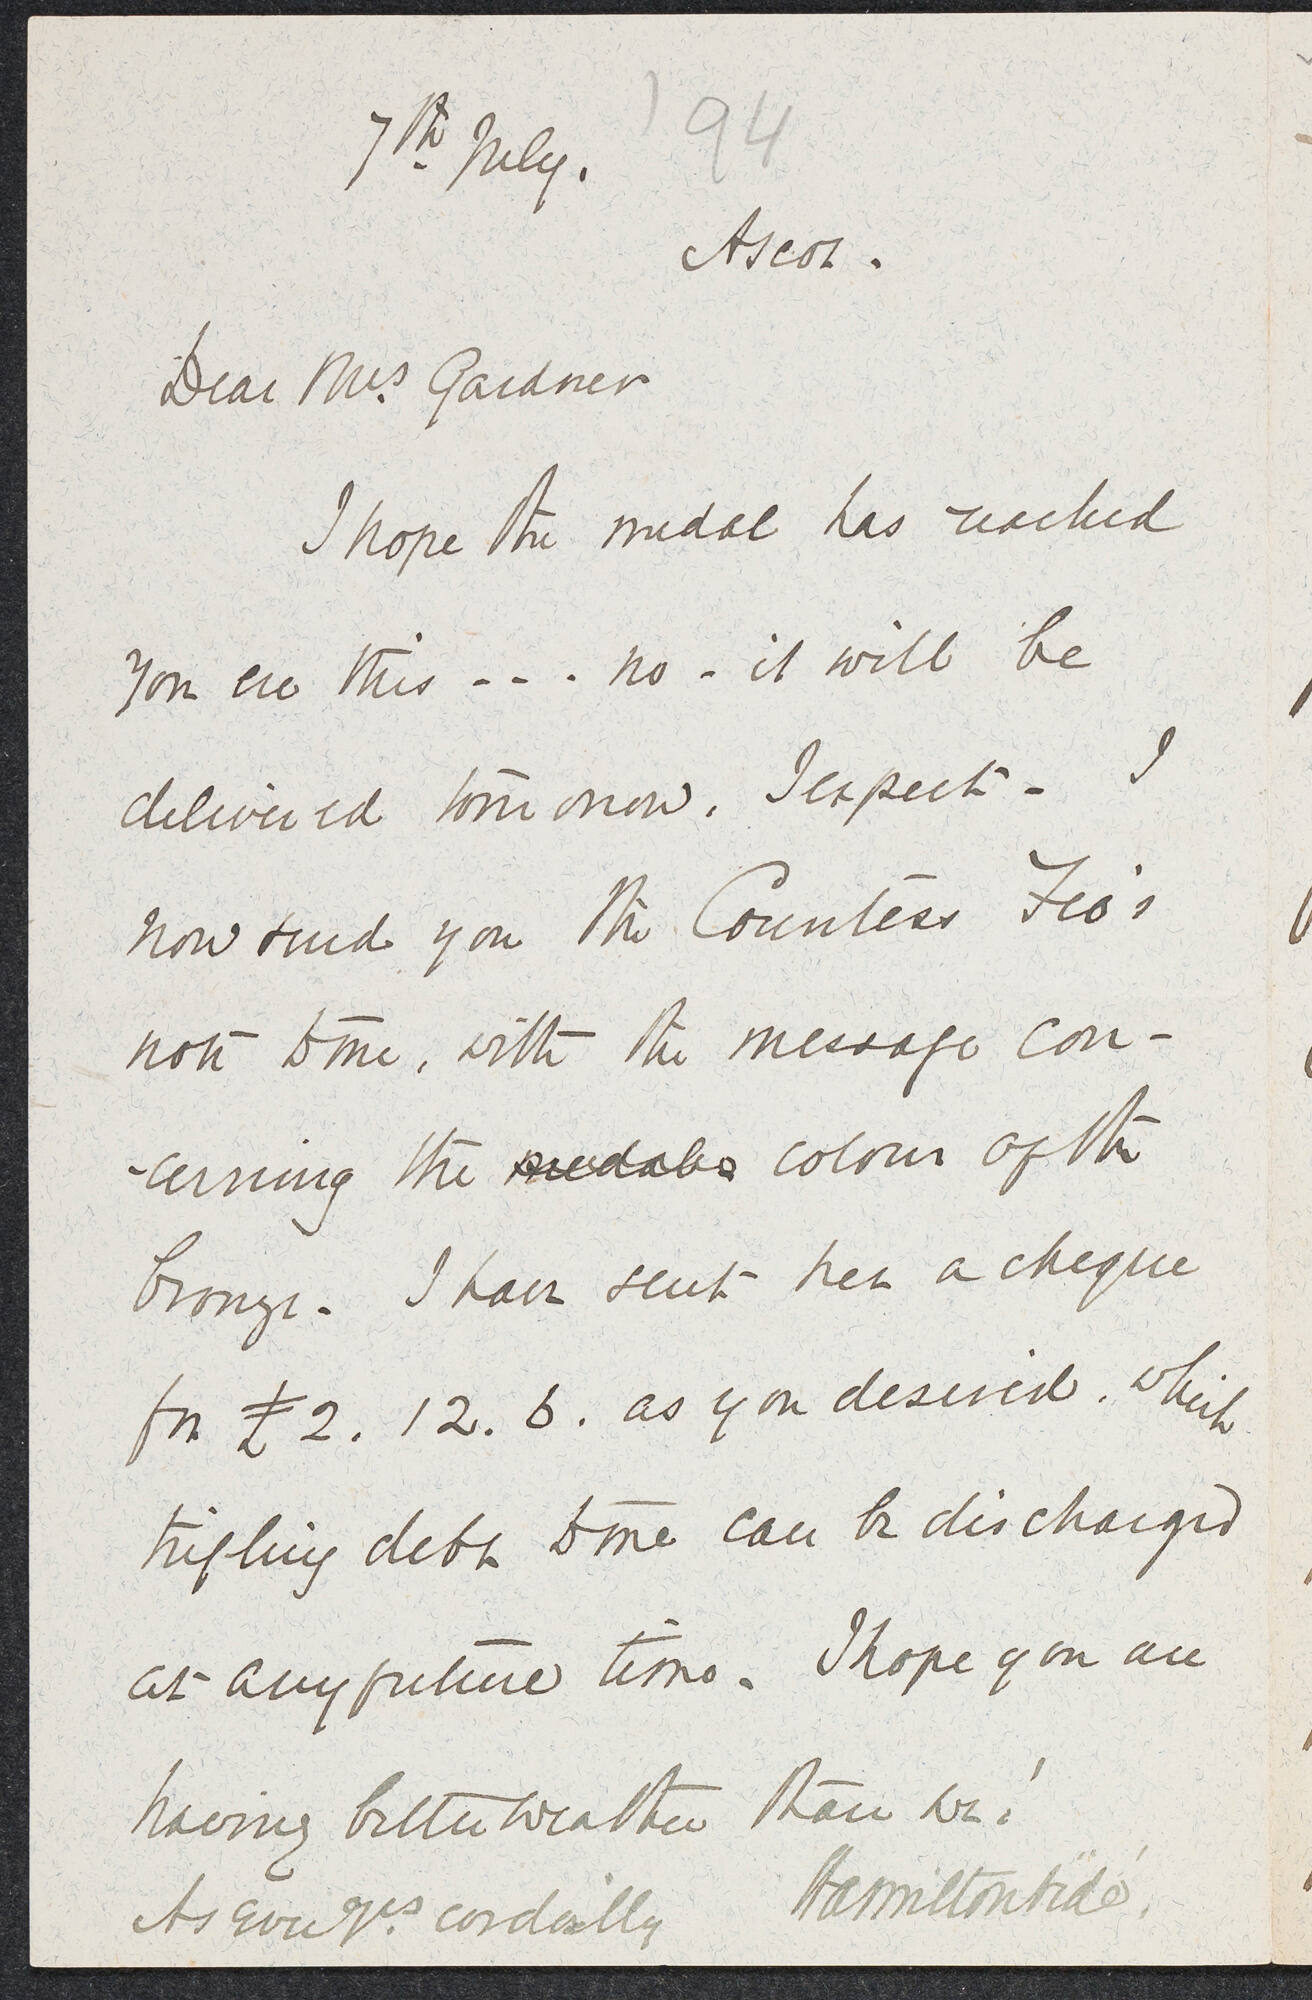 7th July. '94
Ascot.
Dear Mrs. Gardner
I hope the medal has reached
you ere this - - . no - it will be
delivered tomorrow, I expect - I
now send you the Countess Feo's
note to me, with the message con-
-cerning the medals colour of the
bronze. I have sent her a cheque
for £2. 12. 6. as you desired, which
trifling debt to me can be discharged
at any future time. I hope you are
having better weather than we!
As ever yrs. cordially Hamilton Aïdé.